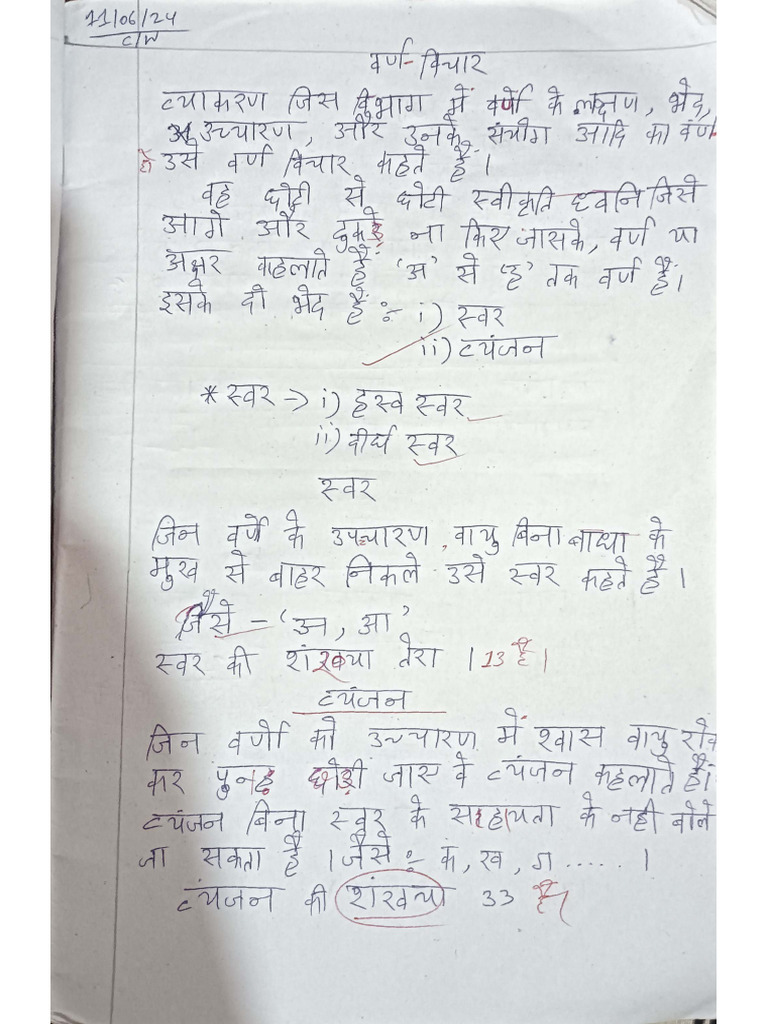 11/06/24
C/W
वर्ण-विचार
व्याकरण जिस विभाग में वर्णो के लक्षण, भेद,
उच्चारण, और उनके संयोग आदि का वर्ण
हो उसे वर्ण विचार कहते हैं।
वह छोटी से छोटी स्वीकृति ध्वनि जिसे
आगे और टुकड़े ना किए जासके, वर्ण या
अक्षर काहलाते हैं 'अ' से 'ह' तक वर्ण हैं।
इसके दो भेद हैं :- i) स्वर
ii) व्यंजन
* स्वर -> i) हस्व स्वर
ii) दीर्घ स्वर
स्वर
जिन वर्णो के उपच्चारण, वायु बिना बाधा के
मुख से बाहर निकले उसे स्वर कहते हैं।
जैसे - 'अ, आ'
स्वर की शंख्या तेरा । 13 है।
व्यंजन
जिन वर्णो को उच्चारण में श्वास वायु रोक
कर पुनह छोड़ी जाए वे व्यंजन कहलाते हैं।
व्यंजन बिना स्वर के सहायता के नही बोले
जा सकता है । जैसे :- क, ख, ग ..... ।
व्यंजन की शंख्या 33 है